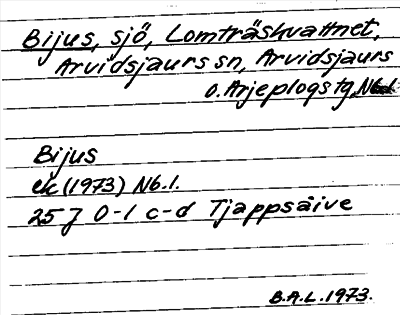 Bijus, sjö, Lomträskvattnet,
Arvidsjaurs sn, Arvidsjaurs
o. Arjeplogs tg, Nb.l.
Bijus
ek (1973) Nb.l.
25 J 0-1 c-d Tjappsåive
B.A.L. 1973.